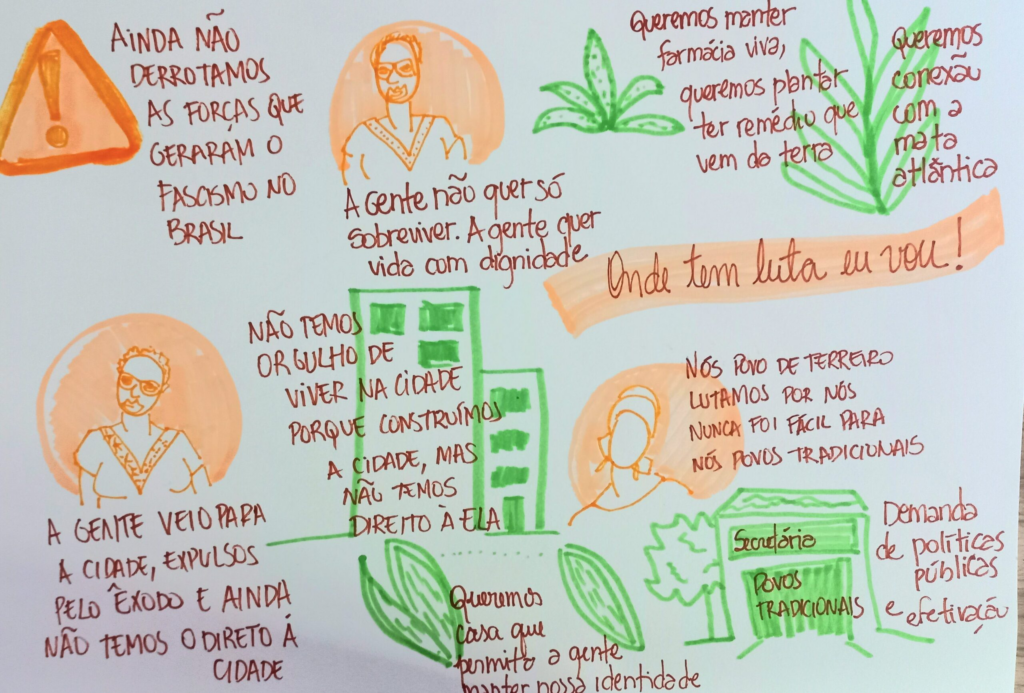 AINDA NÃO
DERROTAMOS
AS FORÇAS QUE
GERARAM O
FASCISMO NO
BRASIL
A Gente não quer só
sobreviver. A gente quer
vida com dignidade
Queremos manter
farmácia viva,
queremos plantar
ter remédio que
vem da terra
Queremos
conexão
com a
mata
atlântica
Onde tem luta eu vou!
A GENTE VEIO PARA
A CIDADE, EXPULSOS
PELO ÊXODO E AINDA
NÃO TEMOS O DIRETO À
CIDADE
NÃO TEMOS
ORGULHO DE
VIVER NA CIDADE
PORQUE CONSTRUÍMOS
A CIDADE, MAS
NÃO TEMOS
DIREITO À ELA
NÓS POVO DE TERREIRO
LUTAMOS POR NÓS
NUNCA FOI FÁCIL PARA
NÓS POVOS TRADICIONAIS
Queremos
casa que
permito a gente
manter nossa identidade
Secretária
POVOS
TRADICIONAIS
Demanda
de políticas
públicas
e efetivação